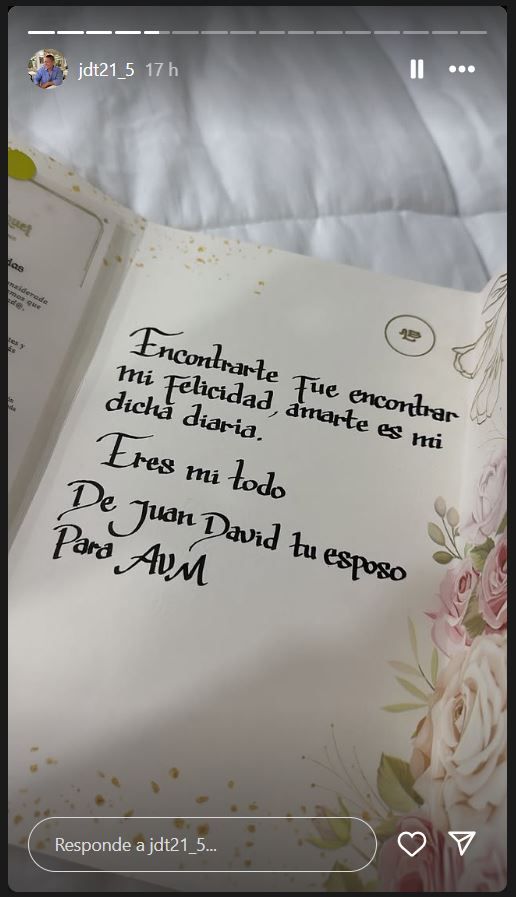 jdt21_5 17 h
das
onsiderada
Encontrarte fue encontrar
mi felicidad, amarte es mi
dicha diaria.
Eres mi todo
De Juan David tu esposo
Para AVM
Responde a jdt21_5...